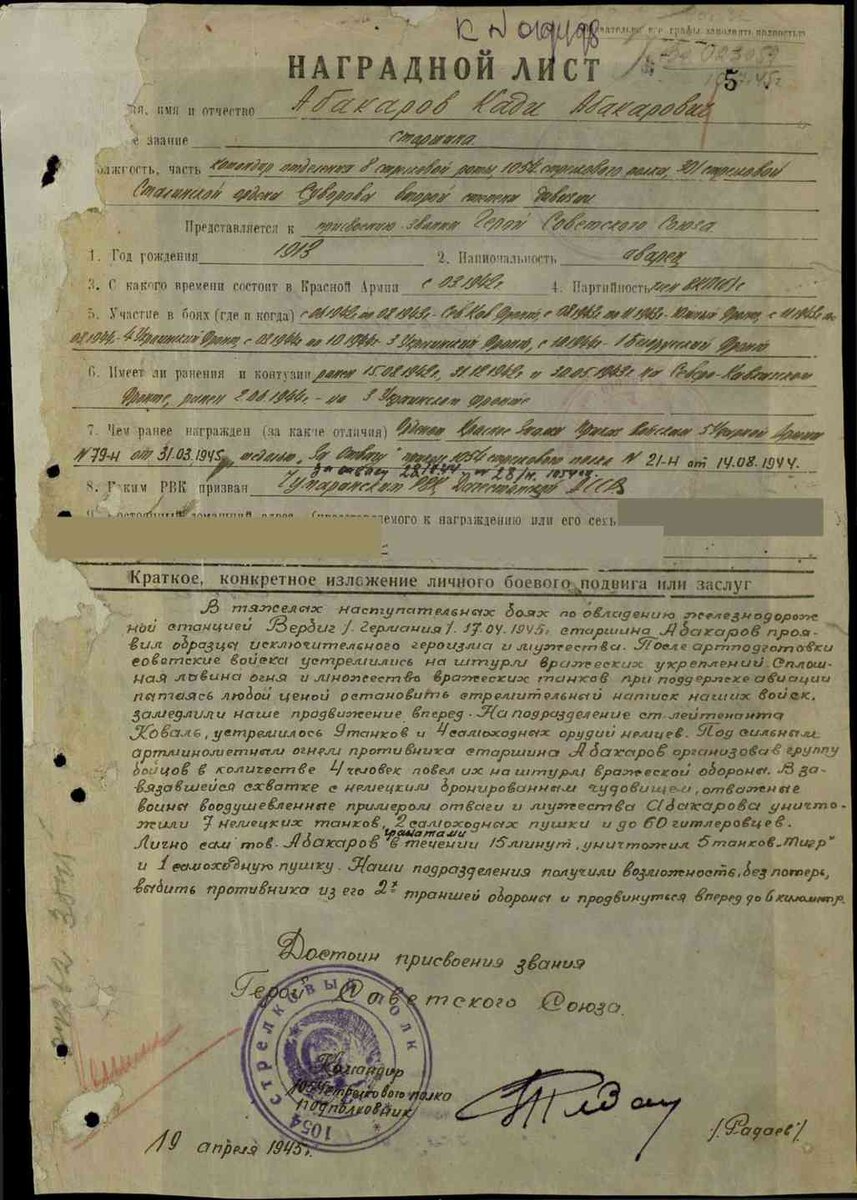 все графы заполнять полностью
НАГРАДНОЙ ЛИСТ
5
имя и отчество Абакаров Кади Абакарович
звание старшина
должность, часть командир отделения 8 стрелковой роты 1054 стрелкового полка, 301 стрелковой
Сталинской ордена Суворова второй степени дивизии
Представляется к присвоению звания Герой Советского Союза
1. Год рождения 1913 2. Национальность аварец
3. С какого времени состоит в Красной Армии с 03.1942г 4. Партийность член ВКП(б) с
5. Участие в боях (где и когда) с 06.1942 по 08.1943г- Сев Кав Фронт с 08.1943 по 11.1943- Южный Фронт, с 11.1943 по
08.1944- 4 Украинский Фронт, с 08.1944 по 10.1944г 3 Украинский Фронт, с 10.1944г- 1 Белорусский Фронт
6. Имеет ли ранения и контузии ранен 15.08.1942г, 31.12.1942 и 20.05.1943г на Северо-Кавказском
Фронте, ранен 2.06.1944г- на 3 Украинском Фронте
7. Чем ранее награжден (за какие отличия) Орденом Красное Знамя Приказ Войскам 5 Ударной Армии
N 79-Н от 31.03.1945г, медаль „За Отвагу" приказ 1054 стрелкового полка N 21-Н от 14.08.1944г.
8. Каким РВК призван РВК Дагестанской АССР
домашний адрес к награждению или его
Краткое, конкретное изложение личного боевого подвига или заслуг
В тяжелых наступательных боях по овладению железнодорож
ной станцией Вербиг /. Германия /. 17.04.1945г старшина Абакаров проя-
вил образцы исключительного героизма и мужества. После артподготовки
советские войска устремились на штурм вражеских укреплений. Сплош-
ная лавина огня и множество вражеских танков при поддержке авиации
пытаясь любой ценой остановить стремительный натиск наших войск,
замедлили наше продвижение вперед. На подразделение ст. лейтенанта
Коваль, устремилось 9 танков и 4 самоходных орудий немцев. Под сильным
артминометным огнем противника старшина Абакаров организовав группу
бойцов в количестве 4 человек повел их на штурм вражеской обороны. В за-
вязавшейся схватке с немецким бронированным чудовищем, отважные
воины воодушевленные примером отваги и мужества Абакарова уничто-
жили 7 немецких танков, 2 самоходных пушки и до 60 гитлеровцев.
гранатами
Лично сам тов. Абакаров в течении 15 минут, уничтожил 5 танков „Тигр"
и 1 самоходную пушку. Наши подразделения получили возможность, без потерь,
выбить противника из его 2й траншей обороны и продвинуться вперед до 6 километр.
Достоин присвоения звания
Герой Советского Союза.
1054 СТРЕЛКОВЫЙ ПОЛК
Командир
1054 стрелкового полка
подполковник
/Радаев/
19 апреля 1945г.